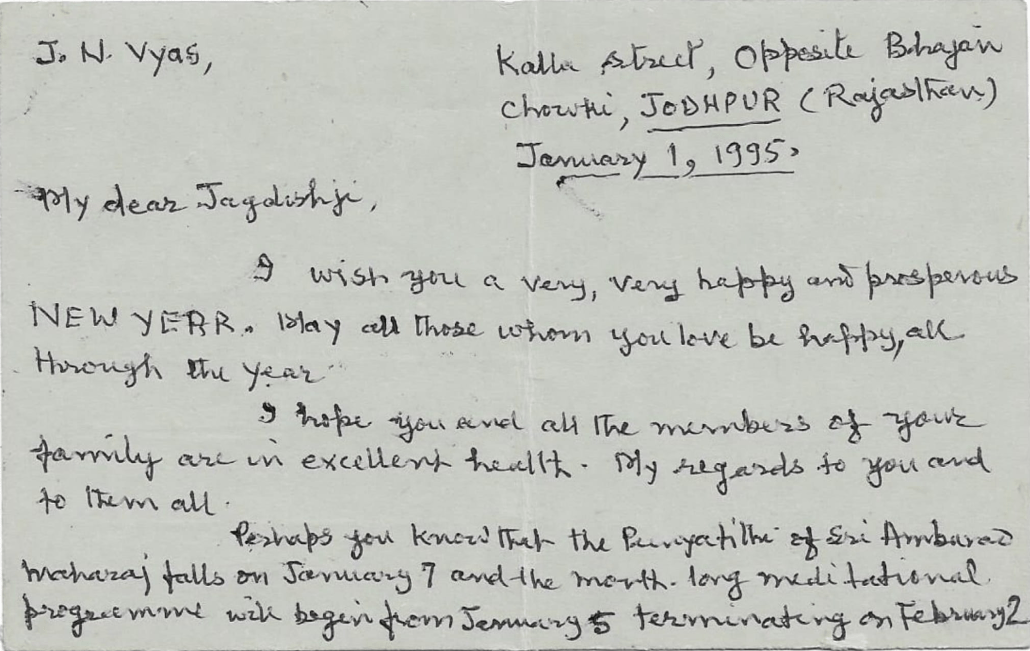 J. N. Vyas,
Kalla street, Opposite Bhajan
Chowki, JODHPUR (Rajasthan)
January 1, 1995.
My dear Jagdishji,
I wish you a very, very happy and prosperous
NEW YEAR. May all those whom you love be happy, all
through the year
I hope you and all the members of your
family are in excellent health. My regards to you and
to them all.
Perhaps you know that the Punyatithi of Sri Amburao
Maharaj falls on January 7 and the month-long meditational
programme will begin from January 5 terminating on February 2